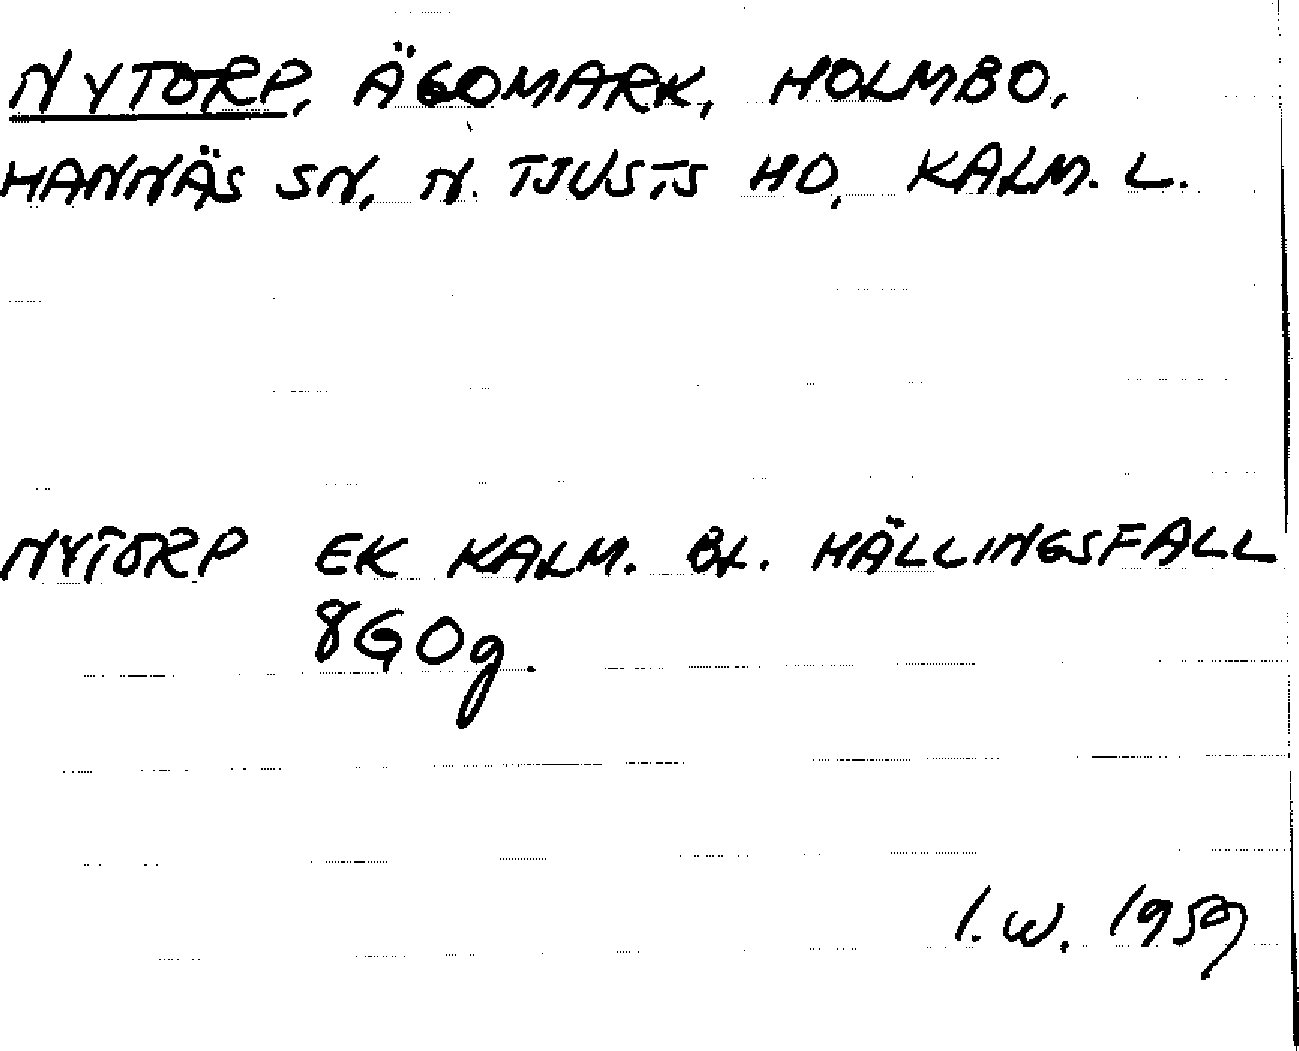 NYTORP, ÄGOMARK, HOLMBO,
HANNÄS SN, N. TJUSTS HD, KALM. L.
NYTORP EK KALM. BL. HÄLLINGSFALL
8G0g.
I.W. 1959